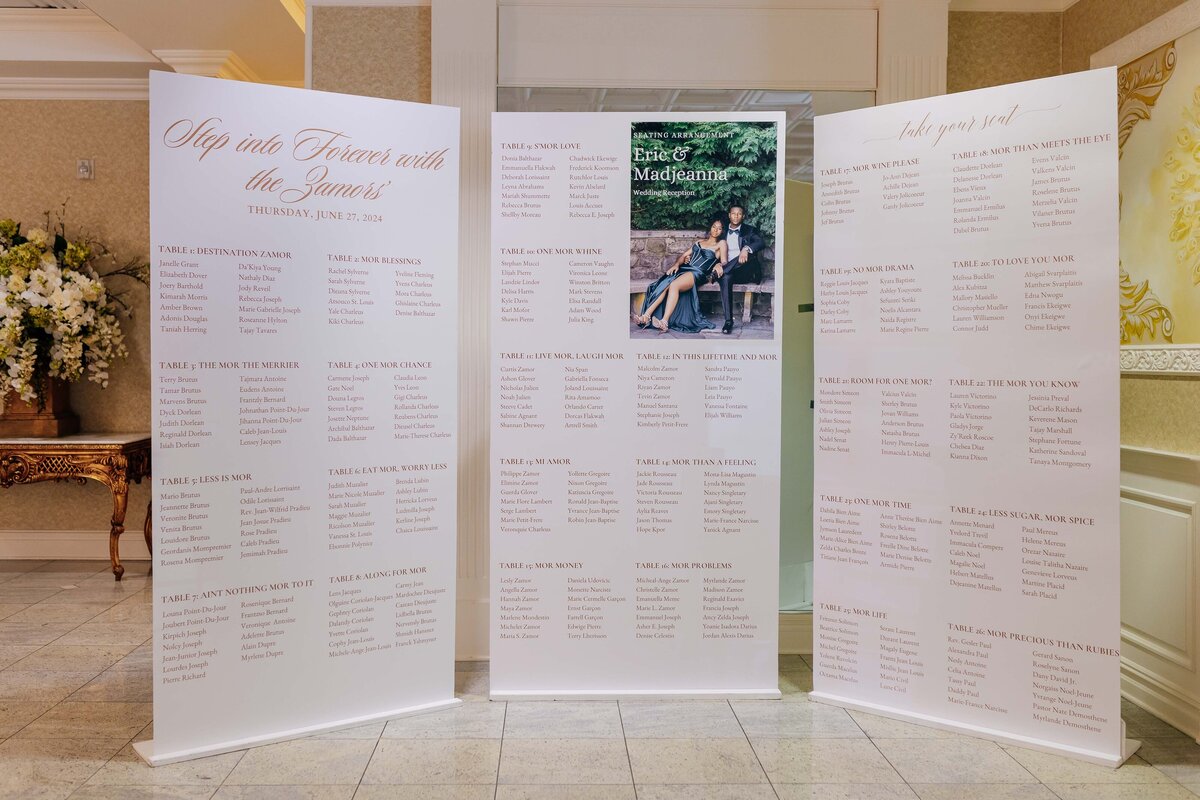 Step into Forever with
the Zamors'
THURSDAY, JUNE 27, 2024
TABLE 1: DESTINATION ZAMOR
Janelle Grant
Elizabeth Dover
Joery Barthold
Kimarah Morris
Amber Brown
Adonis Douglas
Taniah Herring
Da'Kiya Young
Nathaly Diaz
Jody Reveil
Rebecca Joseph
Marie Gabrielle Joseph
Roseanne Hylton
Tajay Tavares
TABLE 2: MOR BLESSINGS
Rachel Sylverne
Sarah Sylverne
Dicuna Sylverne
Atsouco St. Louis
Yale Charleus
Kiki Charleus
Yveline Fleming
Yvens Charleus
Mora Charleus
Ghislaine Charleus
Denise Balthazar
TABLE 3: THE MOR THE MERRIER
Terry Bruteus
Tamar Brutus
Marvens Brutus
Dyck Dorlean
Judith Dorlean
Reginald Dorlean
Isiah Dorlean
Tajmara Antoine
Eudens Antoine
Frantzly Bernard
Johnathan Point-Du-Jour
Jihanna Point-Du-Jour
Caleb Jean-Louis
Lossey Jacques
TABLE 4: ONE MOR CHANCE
Carmene Joseph
Gate Noel
Douna Legros
Steven Legros
Josette Neptune
Archibal Balthazar
Dada Balthazar
Claudia Leon
Yves Leon
Gigi Charleus
Rollande Charleus
Roubens Charleus
Dicusel Charleus
Marie-Therese Charleus
TABLE 5: LESS IS MOR
Mario Brutus
Jeannette Brutus
Veronite Brutus
Venita Brutus
Louidore Brutus
Geordanis Mompremier
Rosena Mompremier
Paul-Andre Lorrisaint
Odile Lorissaint
Rev. Jean-Wilfrid Pradieu
Jean Josue Pradieu
Rose Pradieu
Caleb Pradieu
Jemimah Pradieu
TABLE 6: EAT MOR, WORRY LESS
Judith Muzalier
Marie Nicole Muzalier
Sarah Muzalier
Maggie Muzalier
Ricolson Muzalier
Vanessa St. Louis
Ebonnie Polynice
Brenda Lubin
Ashley Lubin
Herricka Lorveus
Ludmilla Joseph
Kerline Joseph
Chaica Louissaint
TABLE 7: AINT NOTHING MOR TO IT
Louna Point-Du-Jour
Joubert Point-Du-Jour
Kirpich Joseph
Nolcy Joseph
Jean-Junior Joseph
Lourdes Joseph
Pierre Richard
Rosenique Bernard
Frantzso Bernard
Veronique Antoine
Adelette Brutus
Alain Dupre
Myrlene Dupre
TABLE 8: ALONG FOR MOR
Lens Jacques
Olguine Coriolan-Jacques
Gephny Coriolan
Daland​y Coriolan
Yvette Coriolan
Cophy Jean-Louis
Michele-Ange Jean-Louis
Carmy Jean
Mardochee Dieujuste
Castan Dieujuste
Lubella Brutus
Nervensly Brutus
Shmidt Hanmer
Franck Yahnymer
TABLE 9: S'MOR LOVE
Donia Balthazar
Emmanuella Fleurie
Deborah Lorissaint
Leyna Abrahams
Mariah Shummette
Rebecca Brutus
Shellby Moreau
Chadwick Ekewige
Frederick Koomson
Rutchlor Louis
Kevin Abelard
Marck Juste
Louis Accinet
Rebecca E. Joseph
TABLE 10: ONE MOR WHINE
Stephan Mucci
Elijah Pierre
Landzie Lindor
Delisa Harris
Kyle Davis
Karl Mofor
Shawn Pierre
Cameron Vaughn
Veronica Leone
Winston Britton
Mark Stevens
Elisa Randall
Adam Wood
Julia King
SEATING ARRANGEMENT
Eric &
Madjeanna
Wedding Reception
TABLE 11: LIVE MOR, LAUGH MOR
Curtis Zamor
Ashon Glover
Nicholas Julien
Noah Julien
Steeve Cadet
Sabine Agnant
Shannan Drewery
Nia Spun
Gabriella Fonseca
Joland Louissaint
Rita Amamoo
Orlando Carter
Dorcas Flakwah
Antrell Smith
TABLE 12: IN THIS LIFETIME AND MOR
Malcolm Zamor
Niya Cameron
Rivan Zamor
Tevin Zamor
Manuel Santana
Stephanie Joseph
Kimberly Petit-Frere
Sandra Pauyo
Vernald Pauyo
Liam Pauyo
Leia Pauyo
Vanessa Fontaine
Elijah Williams
TABLE 13: MI AMOR
Philippe Zamor
Elimine Zamor
Guerda Glover
Marie Flore Lambert
Serge Lambert
Marie Petit-Frere
Veronquie Charleus
Yollette Gregoire
Nixon Gregoire
Katiuscia Gregoire
Ronald Jean-Baptise
Yvrance Jean-Baptise
Robin Jean-Baptise
TABLE 14: MOR THAN A FEELING
Jackie Rousseau
Jade Rousseau
Victoria Rousseau
Steven Rousseau
Aylia Reaves
Jason Thomas
Hope Kpor
Mona-Lisa Magustin
Lynda Magustin
Nancy Singletary
Ajani Singletary
Emony Singletary
Marie-France Narcisse
Yanick Agnant
TABLE 15: MOR MONEY
Lesly Zamor
Angella Zamor
Hannah Zamor
Maya Zamor
Marlene Mondestin
Michelet Zamor
Maria S. Zamor
Daniela Udovicic
Monette Narciste
Marie Carmelle Garçon
Ernst Garçon
Farrell Garçon
Edwige Pierre
Terry Eherisson
TABLE 16: MOR PROBLEMS
Micheal-Ange Zamor
Christelle Zamor
Emanuella Meme
Marie L. Zamor
Emmanuel Joseph
Asher E. Joseph
Denise Celestin
Myrlande Zamor
Madison Zamor
Reginald Exavier
Francia Joseph
Ancy Zelda Joseph
Younie Isadora Darius
Jordan Alexis Darius
take your seat
TABLE 17: MOR WINE PLEASE
Joseph Brutus
Annedith Brutus
Colin Brutus
Johnny Brutus
Jef Brutus
Jo-Ann Dojean
Achille Dojean
Valery Jolicoeur
Gandy Jolicoeur
TABLE 18: MOR THAN MEETS THE EYE
Claudette Dorlean
Delanesse Dorlean
Ebens Vieux
Joanna Valcin
Emmanuel Ermilus
Rolanda Ermilus
Dabel Brutus
Evens Valcin
Valkens Valcin
James Brutus
Roselene Brutus
Merzelia Valcin
Vilaner Brutus
Yverna Brutus
TABLE 19: NO MOR DRAMA
Reggie Louis Jacques
Hattie Louis Jacques
Sophia Coby
Darley Coby
Marc Lamarre
Katina Lamarre
Kyara Baptiste
Ashley Youyoute
Sefuanni Seriki
Noelis Alcantara
Naida Registre
Marie Regine Pierre
TABLE 20: TO LOVE YOU MOR
Melissa Bucklin
Alex Kubitza
Mallory Masiello
Christopher Mueller
Lauren Williamson
Connor Judd
Abigail Svarplaitis
Matthew Svarplaitis
Edna Nwogu
Francis Ekeigwe
Onyi Ekeigwe
Chime Ekeigwe
TABLE 21: ROOM FOR ONE MOR?
Mondere Simeon
Smith Simeon
Olissa Simeon
Julian Simeon
Ashley Joseph
Nadel Senat
Nadine Senat
Valcius Valcin
Shirley Brutus
Jovan Williams
Anderson Brutus
Natasha Brutus
Henry Pierre-Louis
Immacula L-Michel
TABLE 22: THE MOR YOU KNOW
Lauren Victorino
Kyle Victorino
Paola Victorino
Gladys Jorge
Zy'Reek Roscoe
Chelsea Diaz
Kianna Dixon
Jessinia Preval
DeCarlo Richards
Keverene Mason
Tajay Marshall
Stephane Fortune
Katherine Sandoval
Tanaya Montgomery
TABLE 23: ONE MOR TIME
Dahlia Bien Aime
Loetta Bien Aime
Jemson Lauredent
Marie Alice Bien Aime
Zelda Charles Bouzi
Titiane Jean François
Anne Therèse Bien Aime
Shirley Belotte
Rosena Belotte
Frielle Dine Belotte
Marie Denise Belotte
Armide Pierre
TABLE 24: LESS SUGAR, MOR SPICE
Annette Menard
Yvelord Trevil
Immacula Compere
Caleb Noel
Magalie Noel
Helbert Matellus
Dopamine Matellus
Paul Mereus
Helene Mereus
Orezar Nazaire
Louise Talitha Nazaire
Genevieve Lorveus
Martine Placid
Sarah Placid
TABLE 25: MOR LIFE
Fritznie Salomon
Beatrice Salomon
Moïse Gregoire
Michel Gregoire
Yolene Ravolcin
Guedia Macena
Octama Macelus
Sorane Laurent
Durant Laurent
Magaly Eugene
Frantz Jean Louis
Madlie Jean Louis
Mario Civil
Lunc Civil
TABLE 26: MOR PRECIOUS THAN RUBIES
Rev. Gesler Paul
Alexandra Paul
Nedy Antoine
Celia Antoine
Tassy Paul
Daddy Paul
Marie-France Narcisse
Gerard Sanon
Roselyne Sanon
Dany David Jr.
Norgaius Noel-Jeune
Yvrange Noel-Jeune
Pastor Nate Demosthene
Myrlande Demosthene